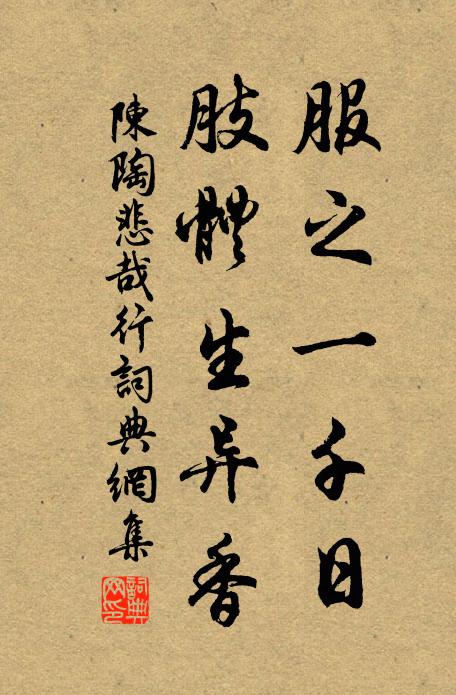 服之一千日
肢體生异香
陳陶悲哉行詞典網集
詞典
网印